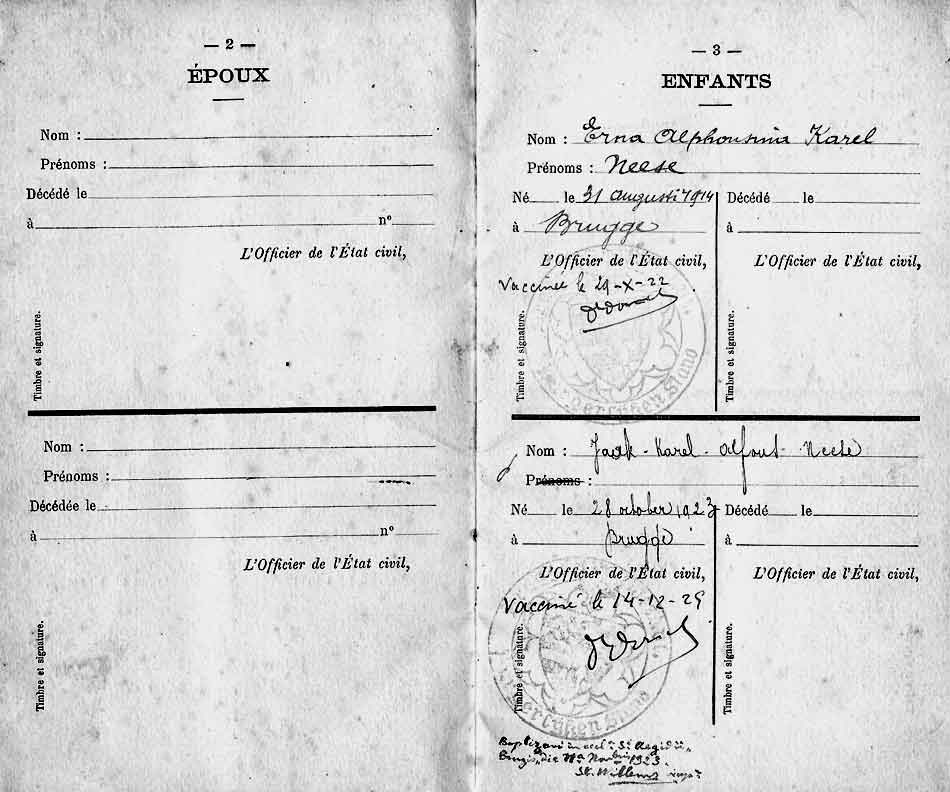 — 2 —
ÉPOUX
Nom :
Prénoms :
Décédé le
à nº
L'Officier de l'État civil,
Timbre et signature.
Nom :
Prénoms :
Décédée le
à nº
L'Officier de l'État civil,
Timbre et signature.
— 3 —
ENFANTS
Nom : Erna Alphonsina Karel
Prénoms : Neese
Né le 31 augusti 1914
à Brugge
L'Officier de l'État civil,
Vaccinée le 29-X-22
Timbre et signature.
Décédé le
à
L'Officier de l'État civil,
Timbre et signature.
Nom : Jack - Karel - Alfons - Neese
Prénoms :
Né le 28 october 1923
à Brugge
L'Officier de l'État civil,
Vacciné le 14-12-29
Timbre et signature.
Décédé le
à
L'Officier de l'État civil,
Timbre et signature.
Aegidii
1923
St. Willems